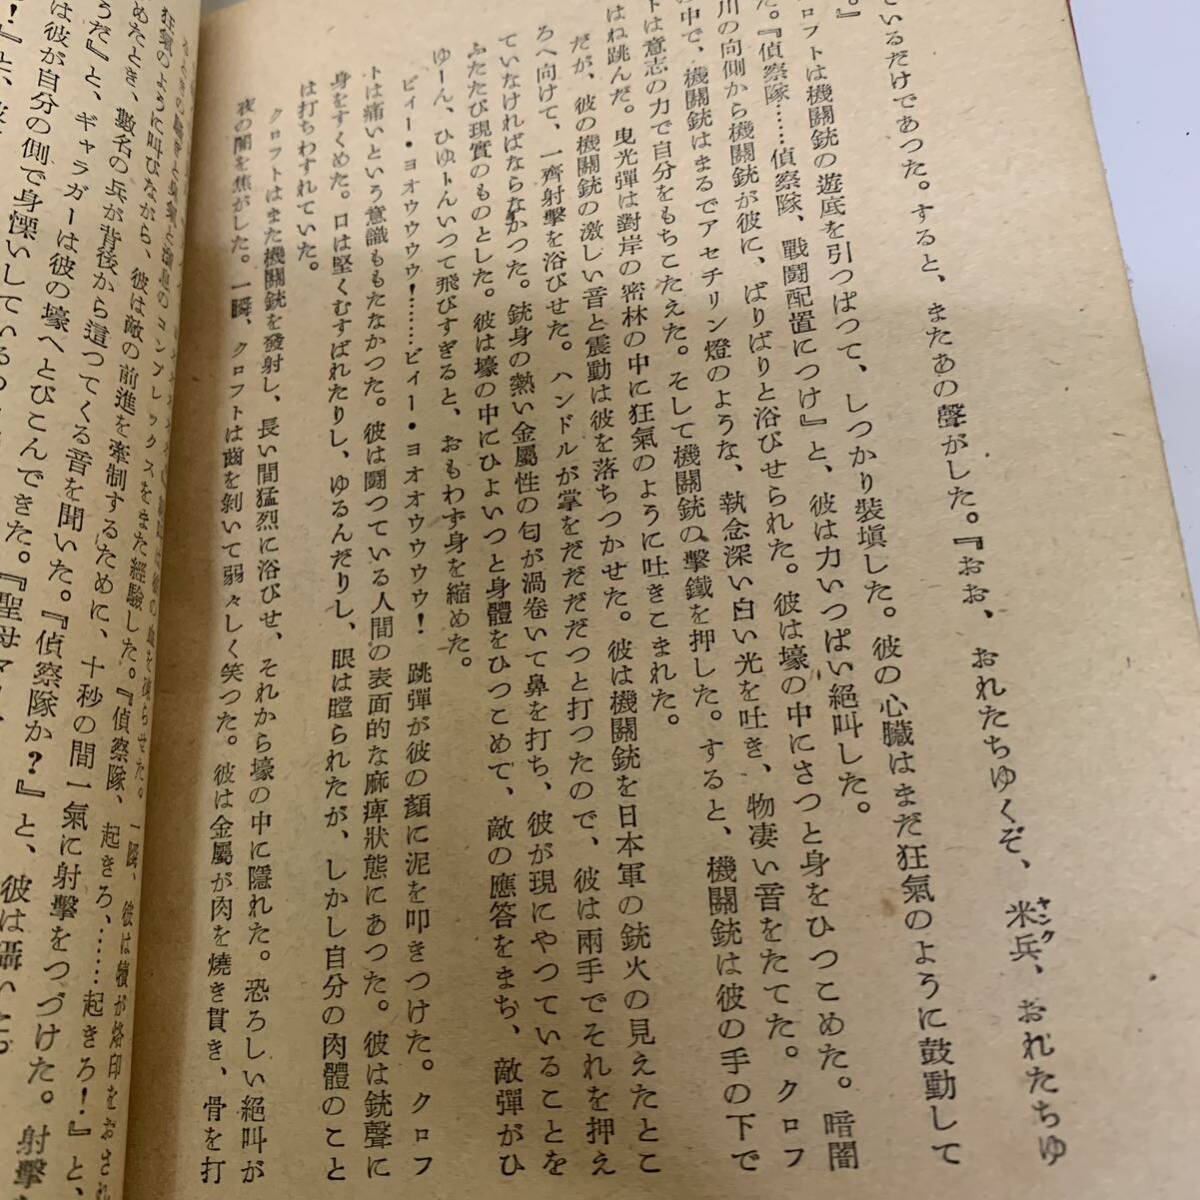 ているだけであった。すると、またあの聲がした。『おお、おれたちゆくぞ、米兵、おれたちゆ
ヤンク
。』
ロフトは機關銃の遊底を引っぱつて、しつかり裝塡した。彼の心臟はまだ狂氣のように鼓動して
た。『偵察隊……偵察隊、戰鬪配置につけ』と、彼は力いつぱい絕叫した。
川の向側から機關銃が彼に、ばりばりと浴びせられた。彼は壕の中にさつと身をひつこめた。暗闇
中で、機關銃はまるでアセチリン燈のような、執念深い白い光を吐き、物凄い音をたてた。クロフ
トは意志の力で自分をもちこたえた。そして機關銃の擊鐵を押した。すると、機關銃は彼の手の下で
はね跳んだ。曳光彈は對岸の密林の中に狂氣のように吐きこまれた。
だが、彼の機關銃の激しい音と震動は彼を落ちつかせた。彼は機關銃を日本軍の銃火の見えたとこ
ろへ向けて、一齊射擊を浴びせた。ハンドルが掌をだだだだつと打つたので、彼は兩手でそれを押え
ていなければならなかつた。銃身の熱い金屬性の匂が渦卷いて鼻を打ち、彼が現にやつていることを
ふたたび現實のものとした。彼は壕の中にひよいつと身體をひつこめて、敵の應答をまち、敵彈がひ
ゆーん、ひゆーんいつて飛びすぎると、おもわず身を縮めた。
ビイー・ヨオウウウ！……ビイー・ヨオオウウウウ！　跳彈が彼の顏に泥を叩きつけた。クロフ
トは痛いという意識ももたなかつた。彼は鬪つている人間の表面的な麻痺狀態にあつた。彼は銃聲に
身をすくめた。口は堅くむすばれたりし、ゆるんだりし、眼は瞠られたが、しかし自分の肉體のこと
は打ちわすれていた。
クロフトはまた機關銃を發射し、長い間猛烈に浴びせ、それから壕の中に隱れた。恐ろしい絕叫が
夜の闇を焦がした。一瞬、クロフトは齒を剝いて弱々しく笑つた。彼は金屬が肉を燒き貫き、骨を打
コンプレックスをまた經驗した。一瞬、彼は
狂氣のように叫びながら、彼は敵の前進を牽制するために、十秒の間一氣に射擊をつづけた。射擊
めたとき、數名の兵が背後から這つてくる音を聞いた。『偵察隊か？』と、彼は囁いた。
うだ』と、ギャラガーは彼の壕へとびこんできた。『聖母マ
は彼が自分の側で身慄いしているの